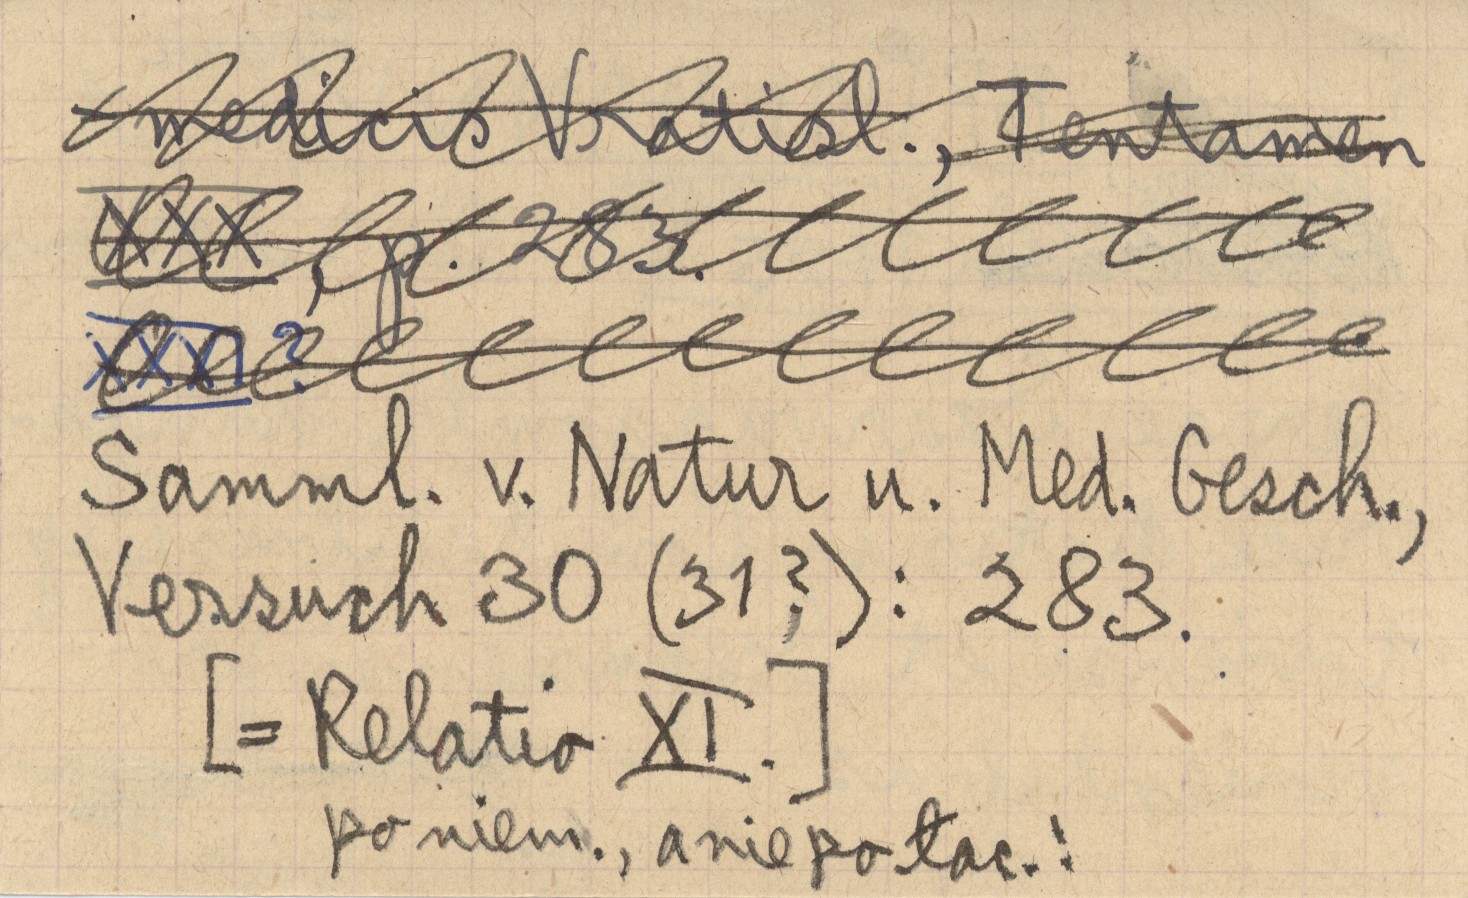 medicis Vratisl., Tentamen
XXX, p. 283.
XXXI?
Samml. v. Natur u. Med. Gesch.,
Versuch 30 (31?): 283.
[= Relatio XI.]
po niem., a nie po łac.!